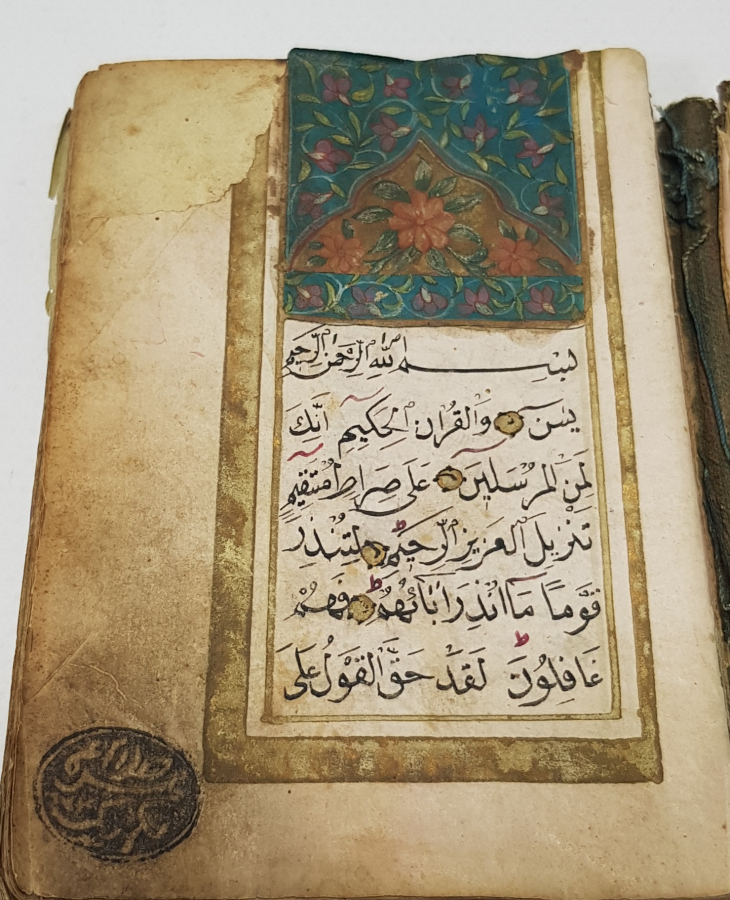 بسم الله الرحمن الرحيم
يسن والقران الحكيم انك
لمن المرسلين على صراط مستقيم
تنزيل العزيز الرحيم لتنذر
قوما ما انذر اباؤهم فهم
غافلون لقد حق القول على